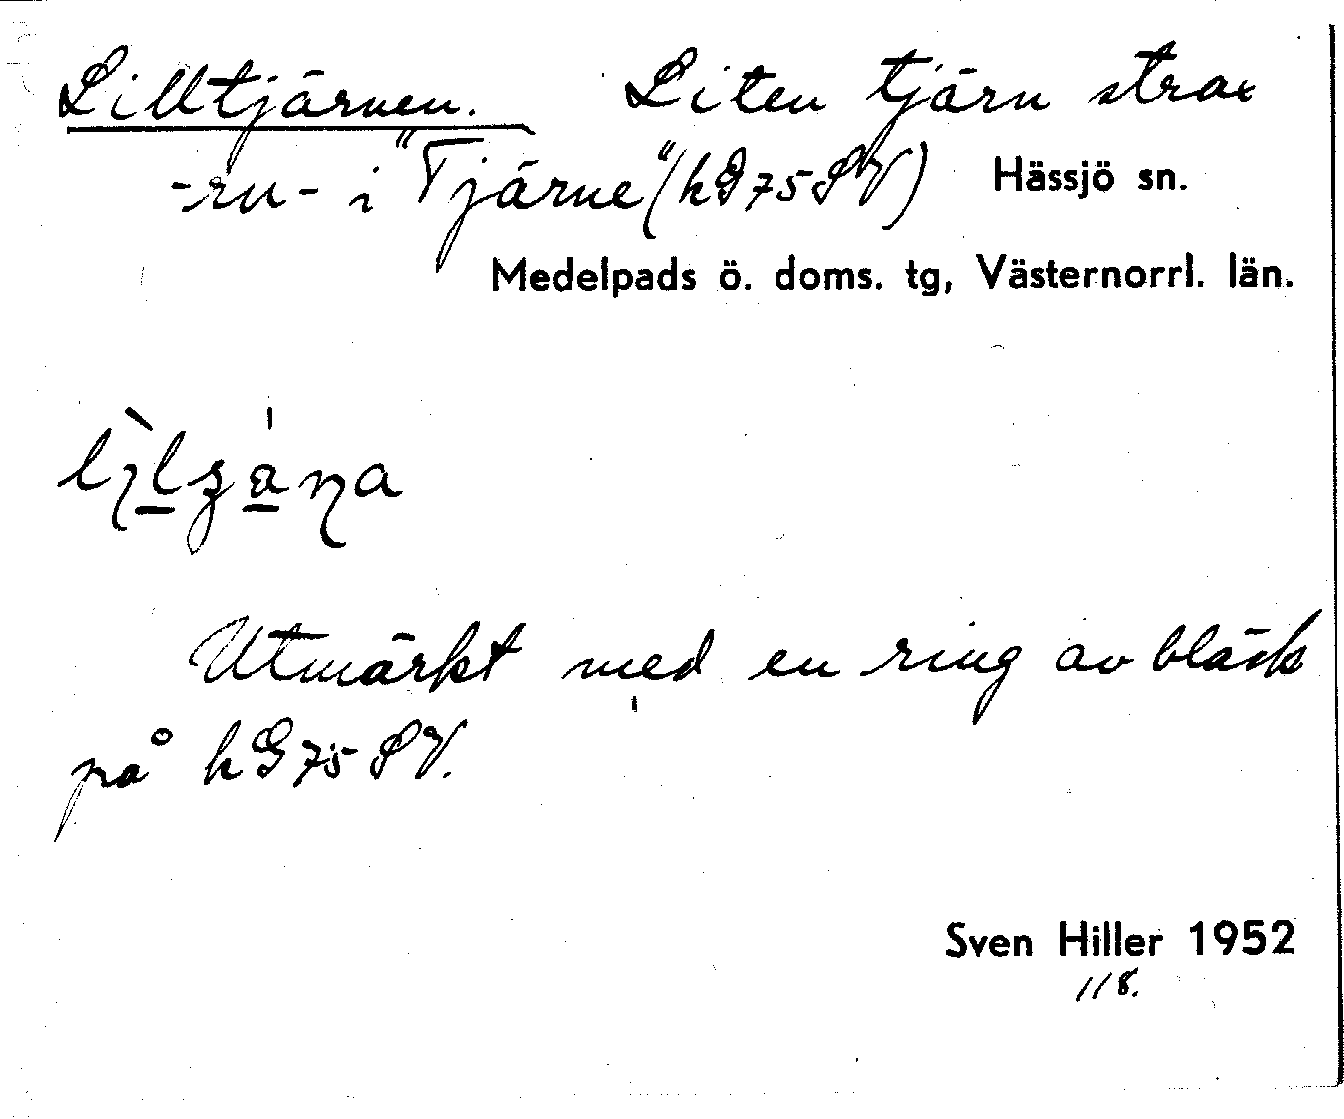 Lilltjärnen. Liten tjärn strax
-ru- i "Tjärne" (kG75SV) Hässjö sn.
Medelpads ö. doms. tg, Västernorrl. län.
Utmärkt med en ring av bläck
på kG75SV.
Sven Hiller 1952
1/8.